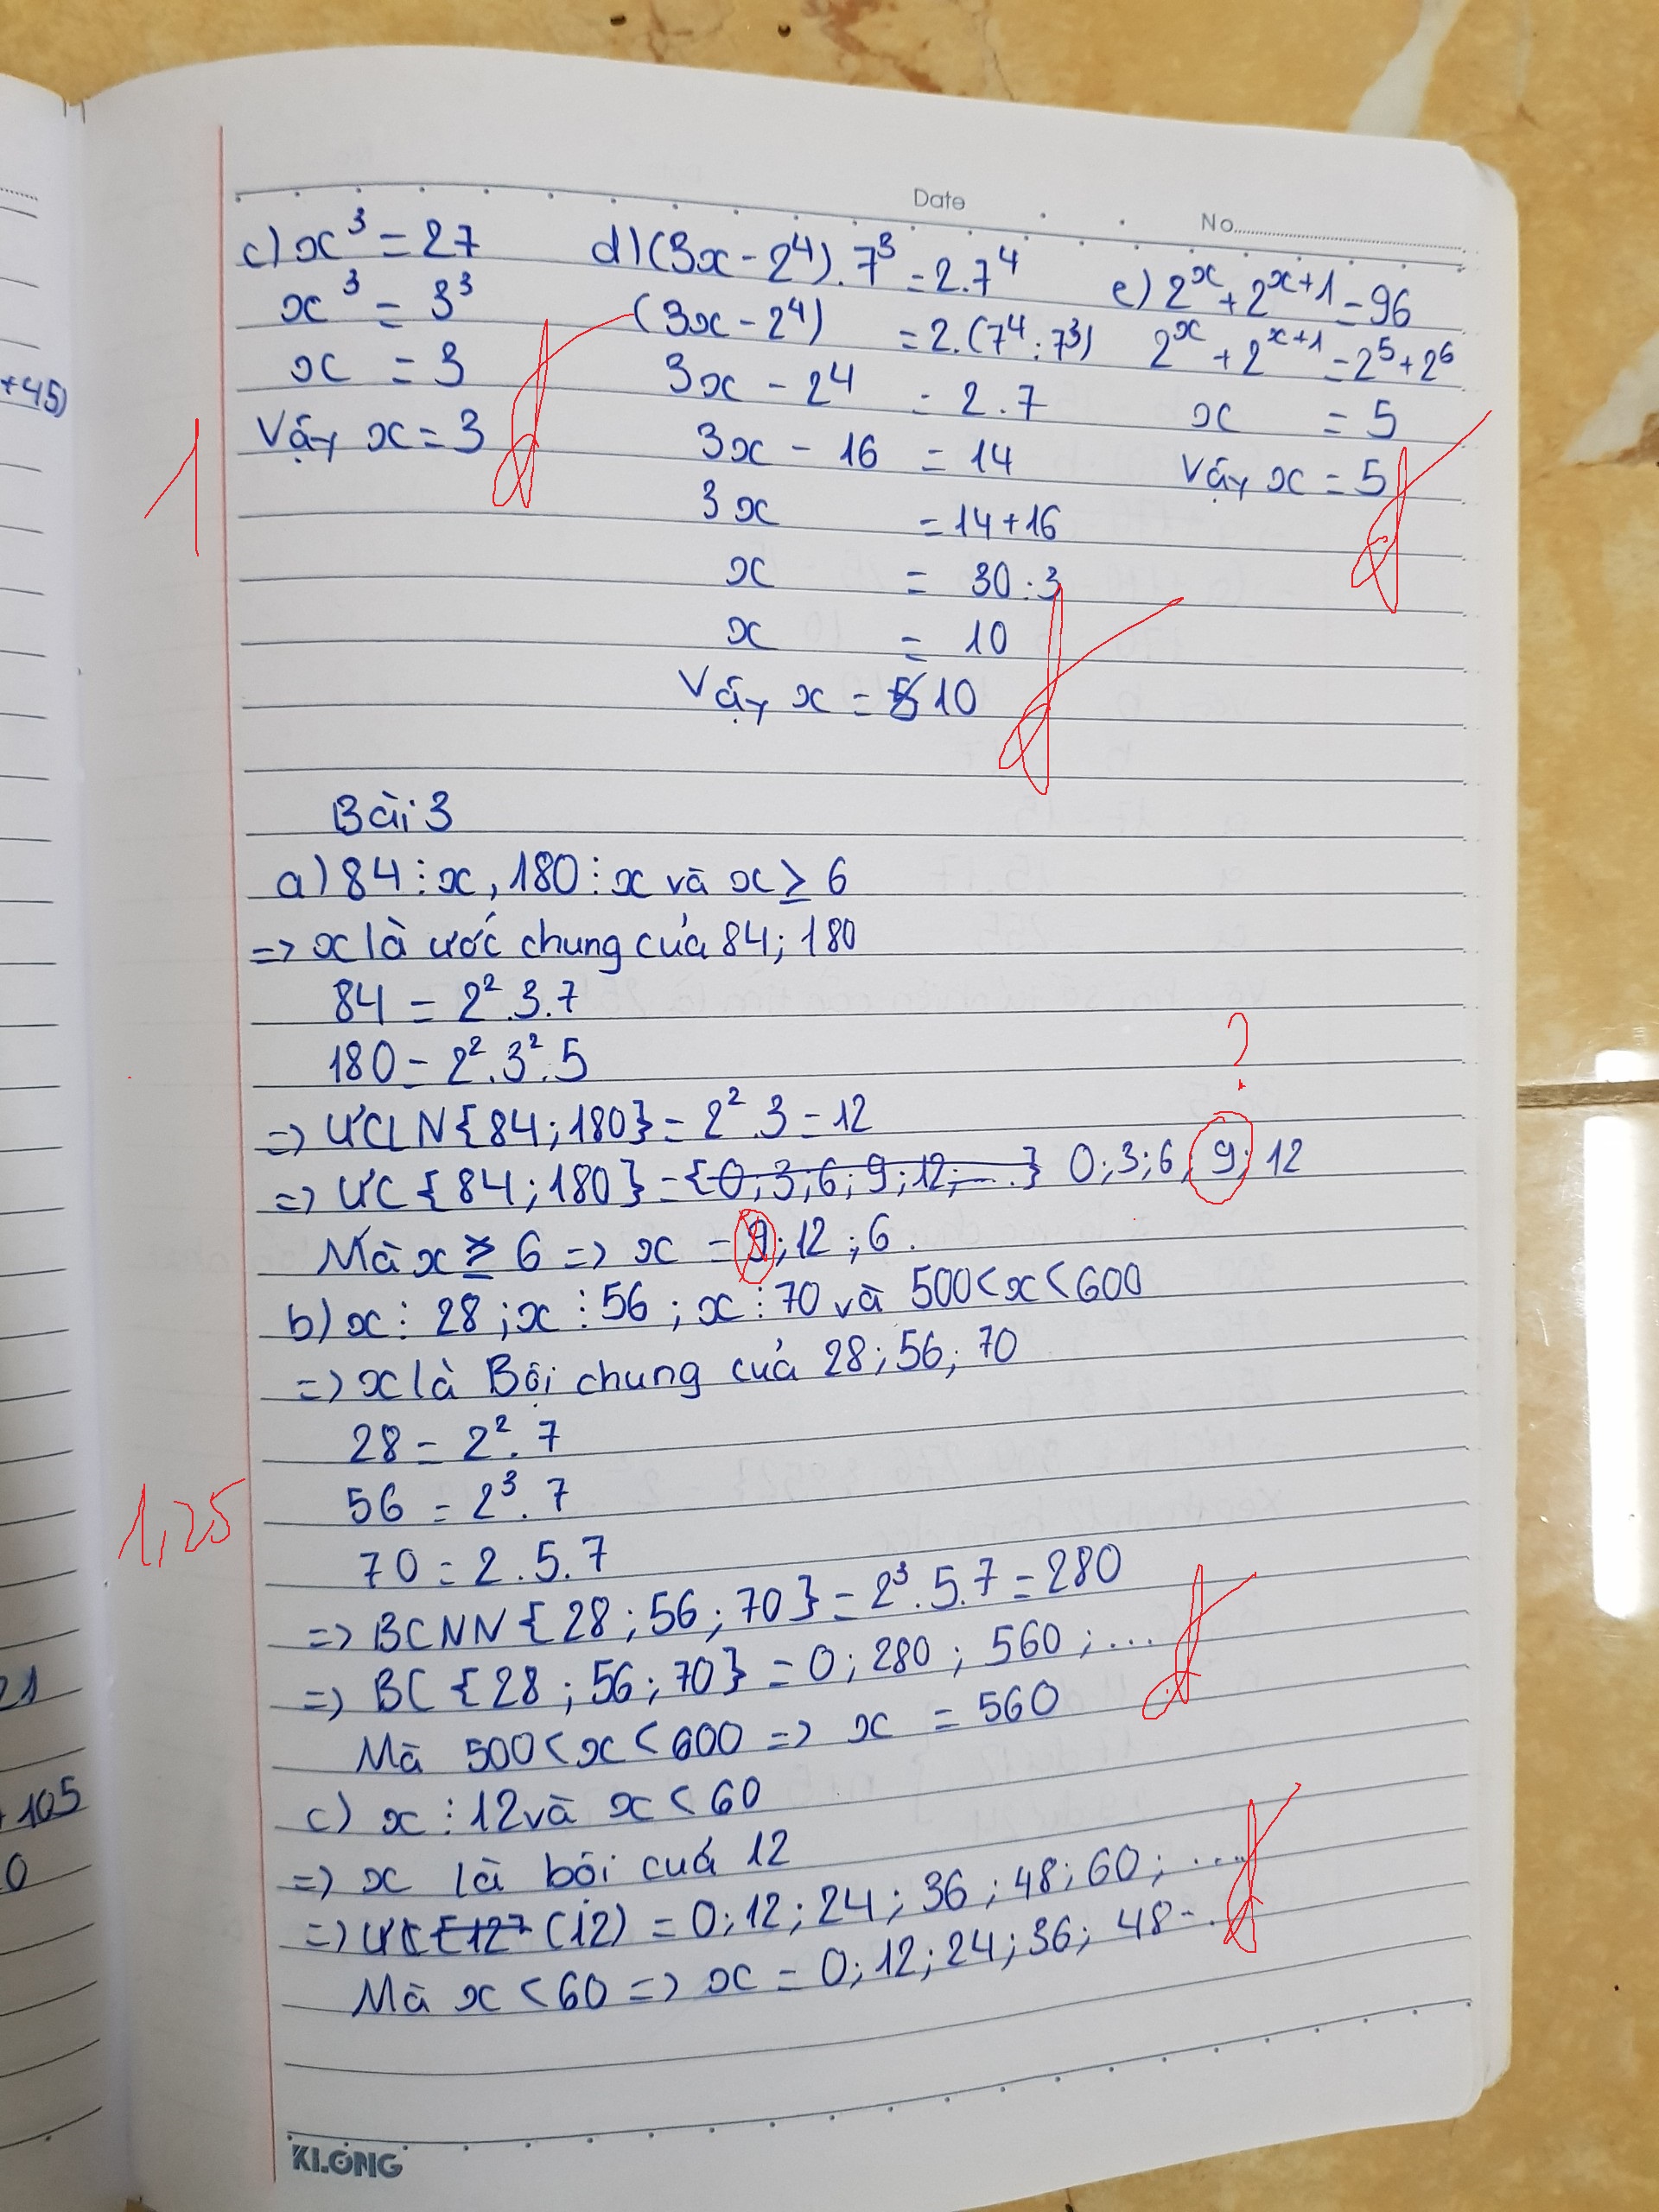 Date
No
c) x³ = 27
x³ = 3³
x = 3
Vậy x = 3
d) (3x - 2⁴). 7³ = 2.7⁴
(3x - 2⁴) = 2.(7⁴ : 7³)
3x - 2⁴ = 2.7
3x - 16 = 14
3x = 14+16
x = 30 : 3
x = 10
Vậy x = 10
e) 2ˣ + 2ˣ⁺¹ = 96
2ˣ + 2ˣ⁺¹ = 2⁵ + 2⁶
x = 5
Vậy x = 5
1
Bài 3
a) 84 ⋮ x, 180 ⋮ x và x ≥ 6
=> x là ước chung của 84; 180
84 = 2².3.7
180 = 2².3².5
?
=> ƯCLN{84; 180} = 2².3 = 12
=> ƯC {84; 180} = {0; 3; 6; 9; 12; ...} 0; 3; 6; 9; 12
Mà x ≥ 6 => x = 9; 12; 6.
b) x ⋮ 28; x ⋮ 56; x ⋮ 70 và 500 < x < 600
=> x là Bội chung của 28; 56; 70
28 = 2².7
56 = 2³.7
1,25
70 = 2.5.7
=> BCNN {28; 56; 70} = 2³.5.7 = 280
=> BC {28; 56; 70} = 0; 280; 560; ...
Mà 500 < x < 600 => x = 560
c) x ⋮ 12 và x < 60
=> x là bội cuả 12
=> (12) = 0; 12; 24; 36; 48; 60; ...
Mà x < 60 => x = 0; 12; 24; 36; 48
KLONG
+45)
21
+105
0